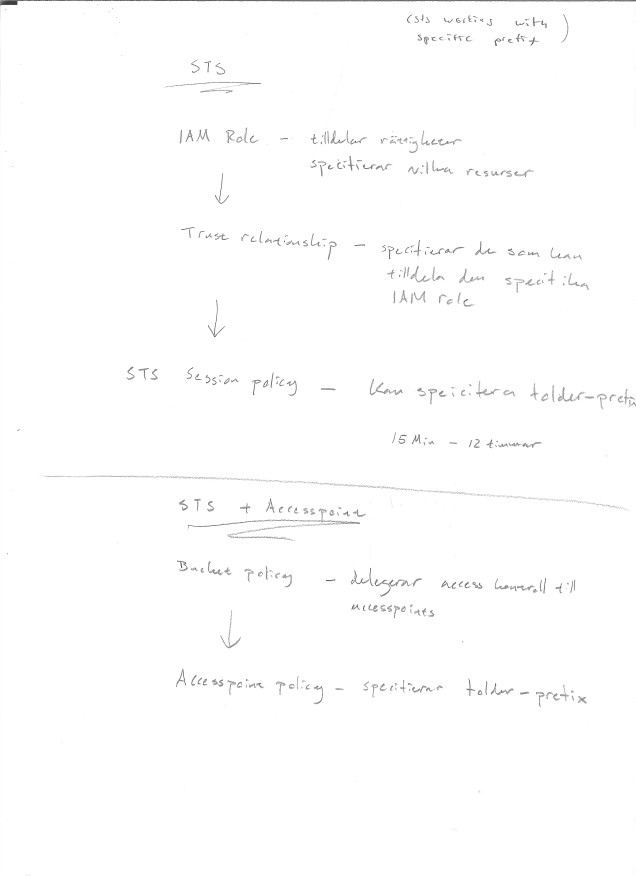 (STS working with
specific prefix)
STS
IAM Role - tilldelar rättigheter
specifierar vilka resurser
Trust relationship - specifierar de som kan
tilldela den specifika
IAM role
STS Session policy - Kan speicifera folder-prefix
15 Min - 12 timmar
STS + Accesspoint
Bucket policy - delegerar access kontroll till
accesspoints
Accesspoint policy - specifierar folder-prefix